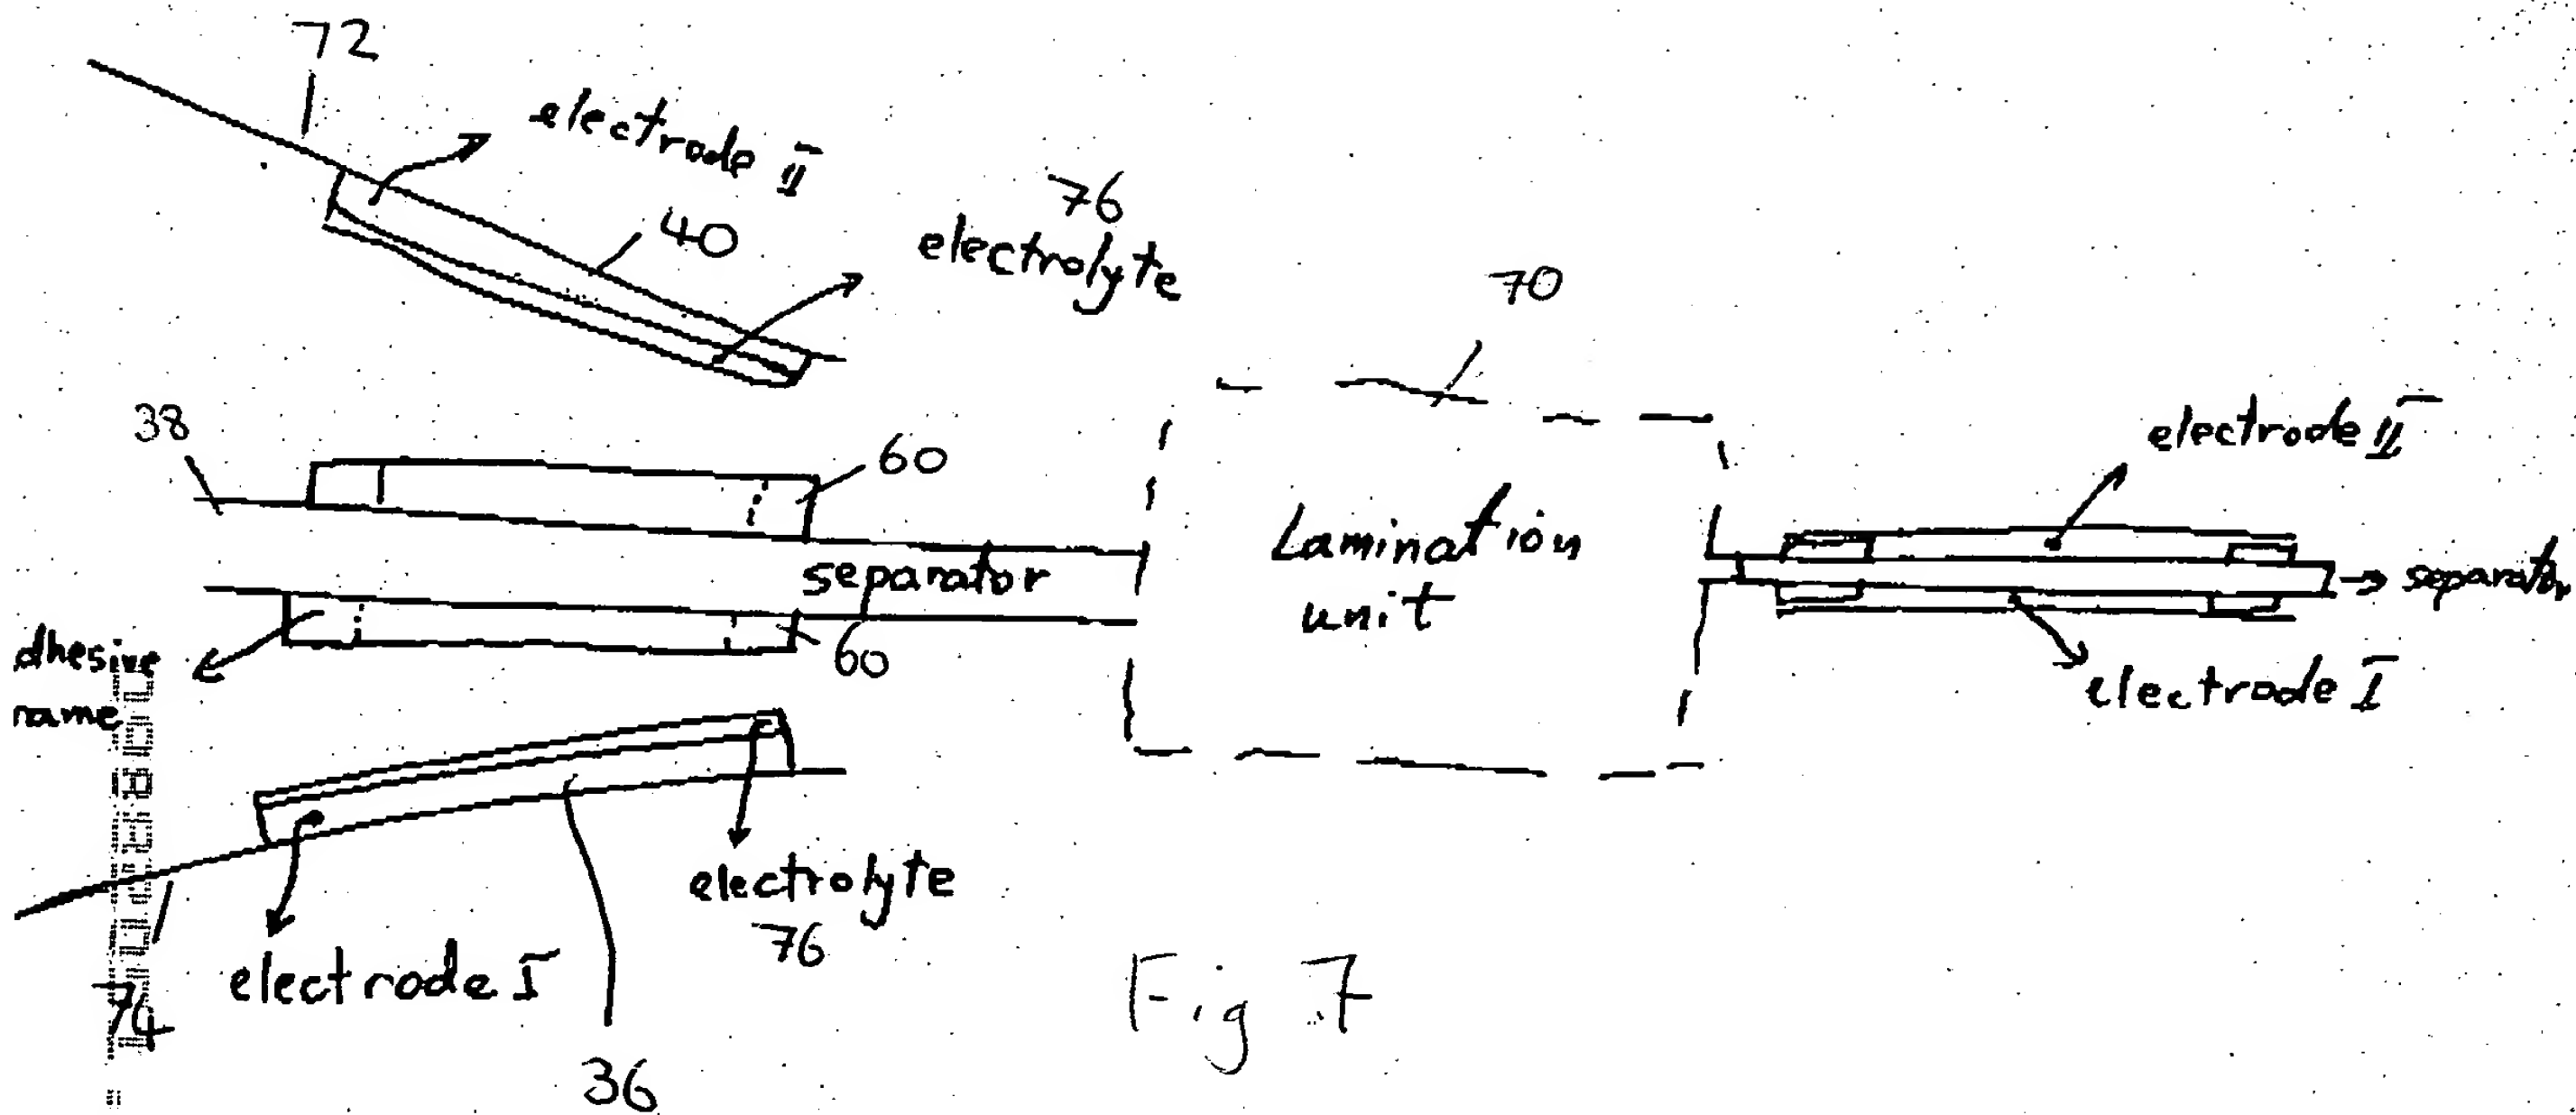 72
electrode II
40
76
electrolyte
70
38
60
separator
Lamination
unit
electrode II
→ separator
electrode I
dhesive
rame
60
electrolyte
76
electrode I
74
36
Fig 7